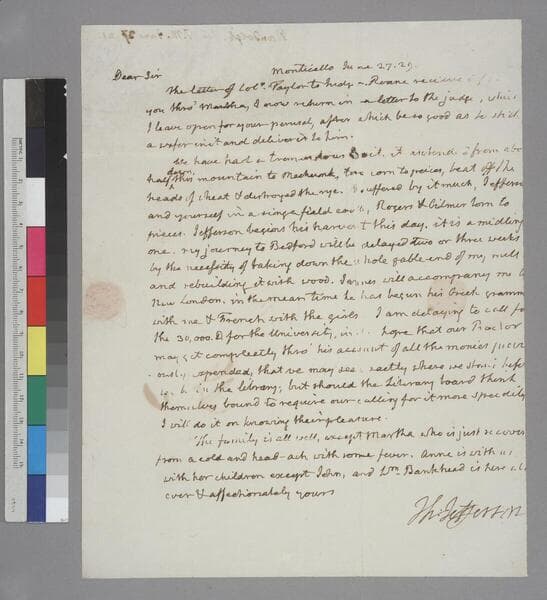 Monticello June 27. 2
Dear Sir
The letter of Col. Taylor to Judge Roane recieved
you thro' Martha, I now return in a letter to the judge, which
I leave open for your perusal, after which be so good as to stick
a wafer in it and deliver it to him.
We have had a tremendous it extended from abo
half down this mountain to Mechunk, tore corn to pieces, beat off the
heads of wheat & destroyed the rye. I suffered by it much, Jefferson
and yourself in a single field each, Rogers & Gilmer torn to
pieces. Jefferson begins his harvest this day. it is a midling
one. my journey to Bedford will be delayed two or three weeks
by the necessity of taking down the whole gable end of my mill
and rebuilding it with wood. James will accompany me to
New London. in the mean time he has begun his Greek gramm
with me & French with the girls I am delaying to call for
the 30,000. D for the University, in hope that our Proctor
may get compleatly thro' his account of all the monies
ously expended, that we may see exactly where we stand before
in the library; but should the Literary board think
themselves bound to require our calling for it more speedily
I will do it on knowing their pleasure.
The family is all well, except Martha who is just recover
from a cold and head-ach with some fever. Anne is with us
with her children except John, and Wm. Bankhead is here
ever & affectionately yours
Th: Jefferson